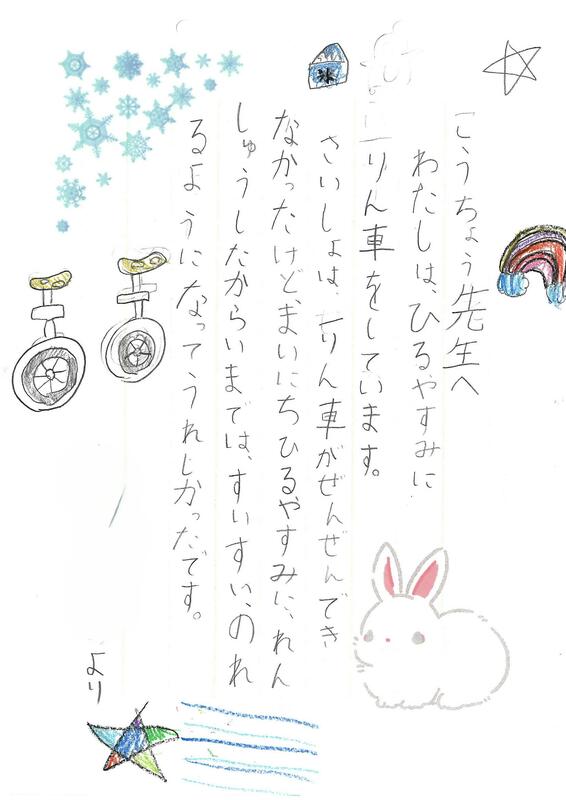 こうちょう先生へ
わたしは、ひるやすみに
一りん車をしています。
さいしょは、一りん車がぜんぜんでき
なかったけど、まいにちひるやすみに、れん
しゅうしたからいまでは、すいすい、のれ
るようになってうれしかったです。
より
氷